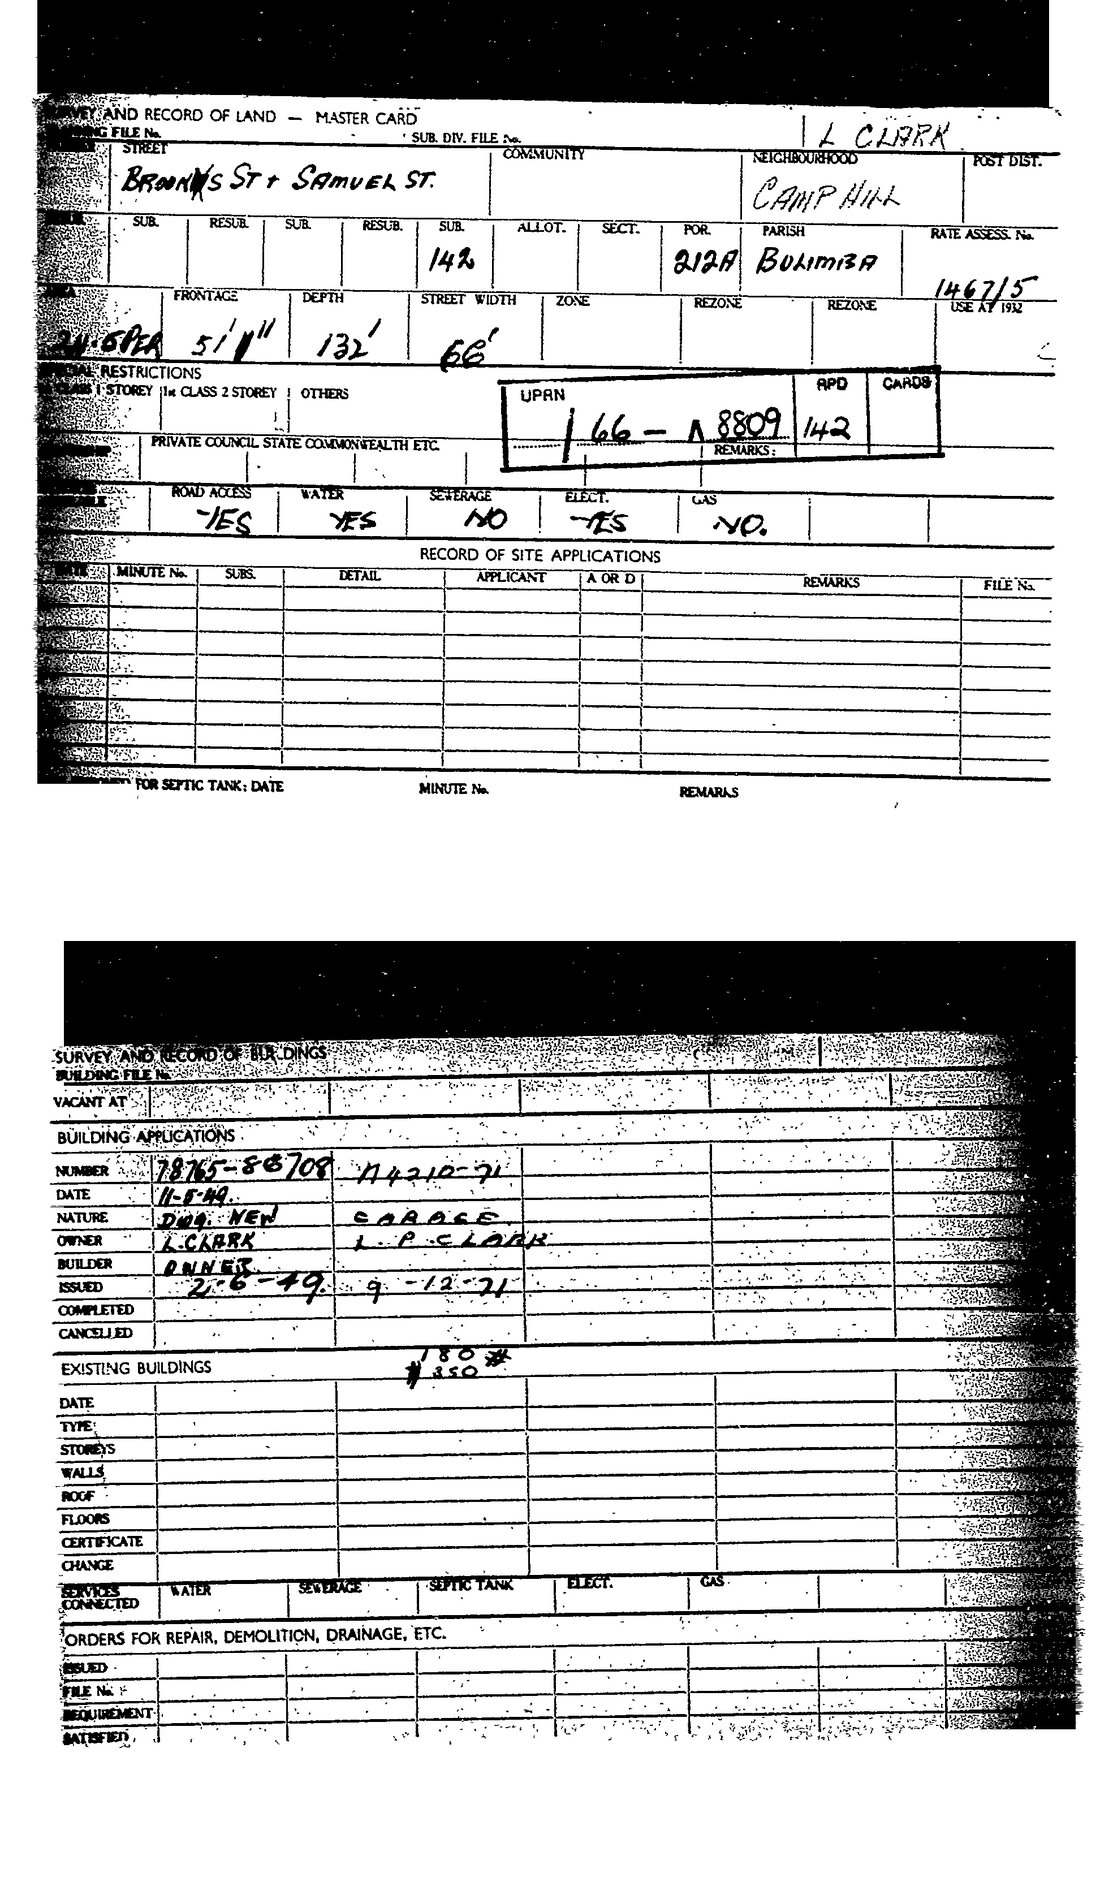 SURVEY AND RECORD OF LAND — MASTER CARD
BUILDING FILE No. SUB. DIV. FILE No. L CLARK
STREET COMMUNITY NEIGHBOURHOOD POST DIST.
ST + SAMUEL ST. CAMP HILL
SUB. RESUB. SUB. RESUB. SUB. ALLOT. SECT. POR. PARISH RATE ASSESS. No.
142 212A BULIMBA 1467/5
AREA FRONTAGE DEPTH STREET WIDTH ZONE REZONE REZONE USE AT 1932
PER 132' 66'
SPECIAL RESTRICTIONS
CLASS 1 STOREY 1st CLASS 2 STOREY OTHERS
UPRN RPD CARDS
66 — 8809 142
PRIVATE COUNCIL STATE COMMONWEALTH ETC. REMARKS:
ROAD ACCESS WATER SEWERAGE ELECT. GAS
YES YES NO YES NO.
RECORD OF SITE APPLICATIONS
DATE MINUTE No. SUBS. DETAIL APPLICANT A OR D REMARKS FILE No.
FOR SEPTIC TANK: DATE MINUTE No. REMARKS
SURVEY AND RECORD OF BUILDINGS
BUILDING FILE No.
VACANT AT
BUILDING APPLICATIONS
NUMBER 78765-88708 A4210-71
DATE 11-5-49.
NATURE Dwg. NEW GARAGE
OWNER L. CLARK L. P. CLARK
BUILDER OWNER
ISSUED 2-6-49. 9-12-71
COMPLETED
CANCELLED
180 #
EXISTING BUILDINGS 350
DATE
TYPE
STOREYS
WALLS
ROOF
FLOORS
CERTIFICATE
CHANGE
SERVICES CONNECTED WATER SEWERAGE SEPTIC TANK ELECT. GAS
ORDERS FOR REPAIR, DEMOLITION, DRAINAGE, ETC.
ISSUED
FILE No.
REQUIREMENT
SATISFIED